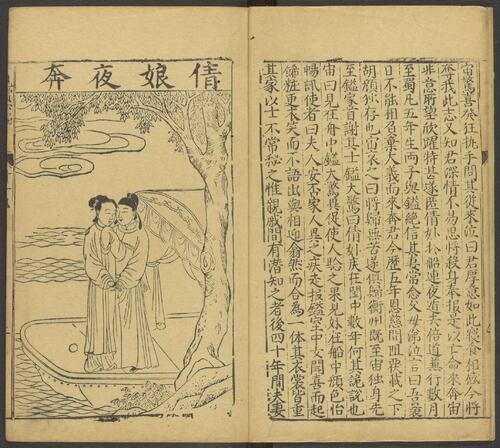 倩娘夜奔
宙驚喜發狂執手問其從來泣曰君厚意如此寢食相感今將
奪我此志又知君深情不易思將殺身奉報是以亡命來奔宙
非意所望欣躍特甚遂匿倩娘於船連夜遁去倍道兼行數月
至蜀凡五年生兩子與鎰絕信其妻常念父母涕泣言曰吾曩
日不能相負棄大義而來奔君今歷五年恩慈間阻覆載之下
胡顏獨存也宙哀之曰將歸無苦遂俱歸衡州既至宙獨身先
至鎰家首謝其事鎰大驚曰倩娘疾在閨中數年何其詭說也
宙曰見在舟中鎰大驚異促使人驗之果見娘在船中顏色怡
暢訊使者曰大人安否家人異之疾走報鎰室中女聞喜而起
飾粧更衣笑而不語出與相迎翕然而合為一體其衣裳皆重
其家以事不常秘之惟親戚間有潛知之者後四十年間夫妻